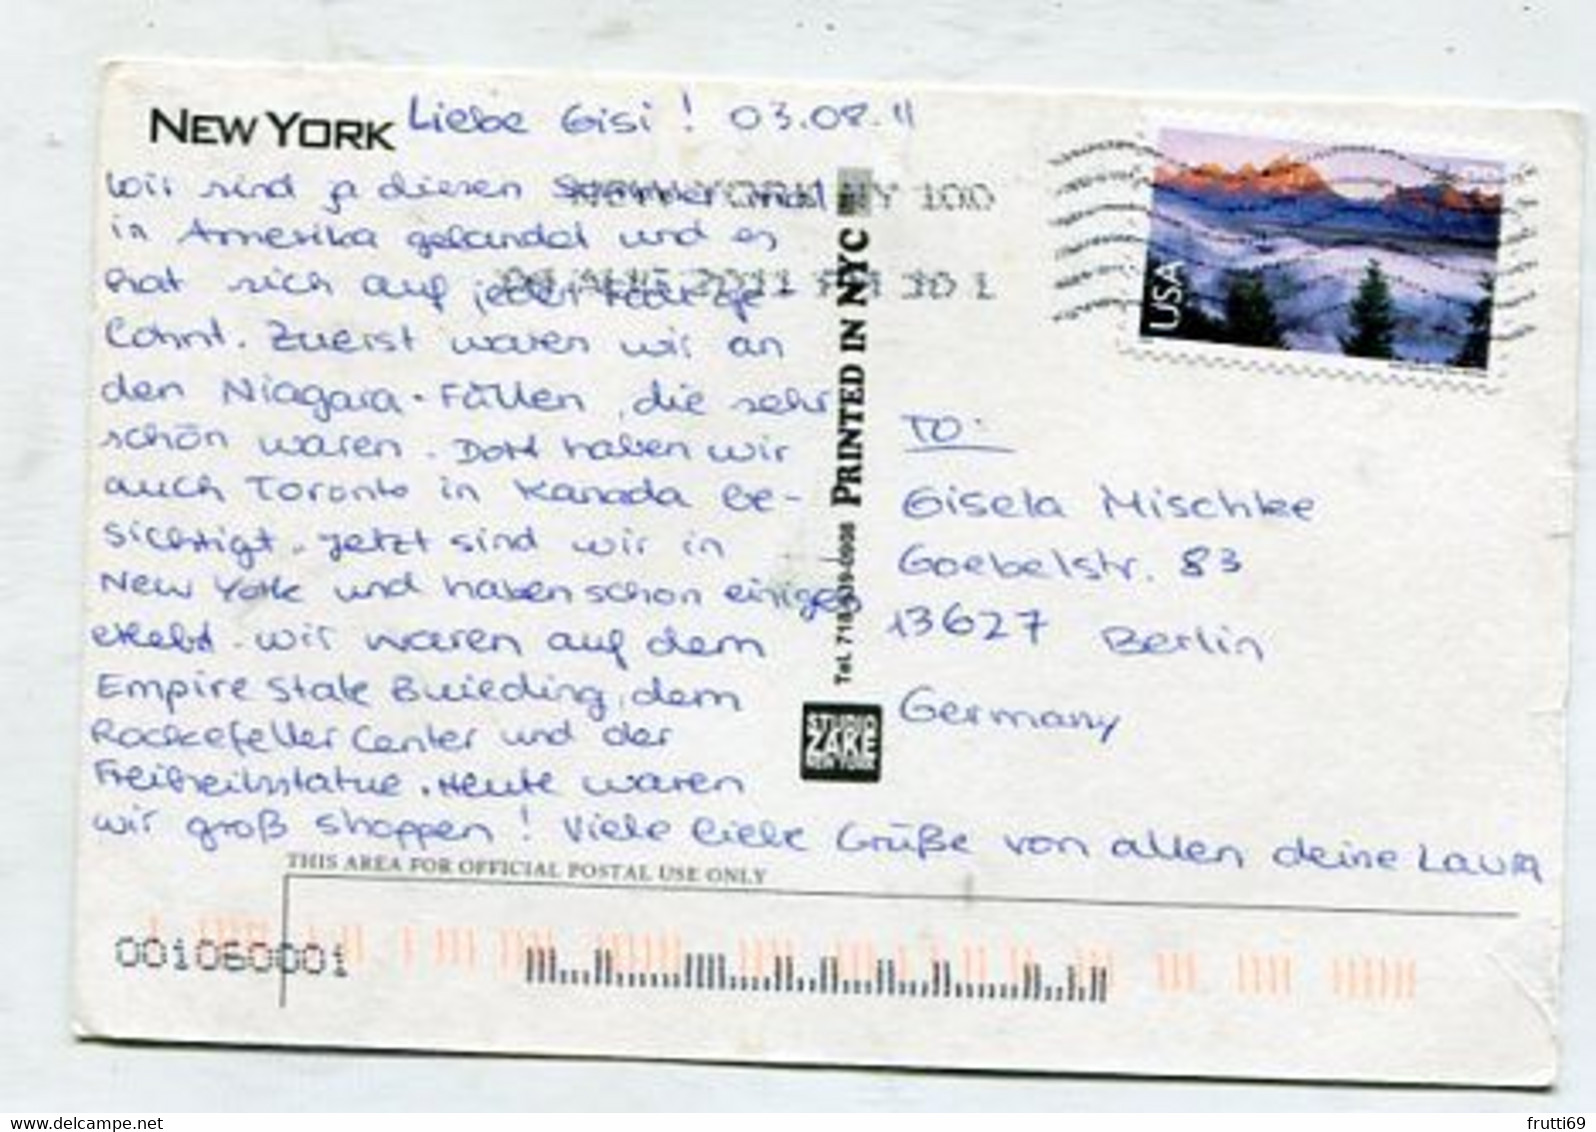 NEW YORK
Liebe Gisi! 03.08.11
Wir sind ja diesen Sommer mal
in Amerika gelandet und es
hat sich auf jeden Fall ge-
lohnt. Zuerst waren wir an
den Niagara-Fällen, die sehr
schön waren. Dort haben wir
auch Toronto in Kanada be-
sichtigt. Jetzt sind wir in
New York und haben schon einiges
erlebt. Wir waren auf dem
Empire State Building, dem
Rockefeller Center und der
Freiheitsstatue. Heute waren
wir groß shoppen! Viele liebe Grüße von allen deine Laura
NY 100
2011 PM 10 L
USA
PRINTED IN NYC
Tel. 718
STUDIO
ZAKE
NEW YORK
TO:
Gisela Mischke
Goebelstr. 83
13627 Berlin
Germany
THIS AREA FOR OFFICIAL POSTAL USE ONLY
001060001
www.delcampe.net
frutti69